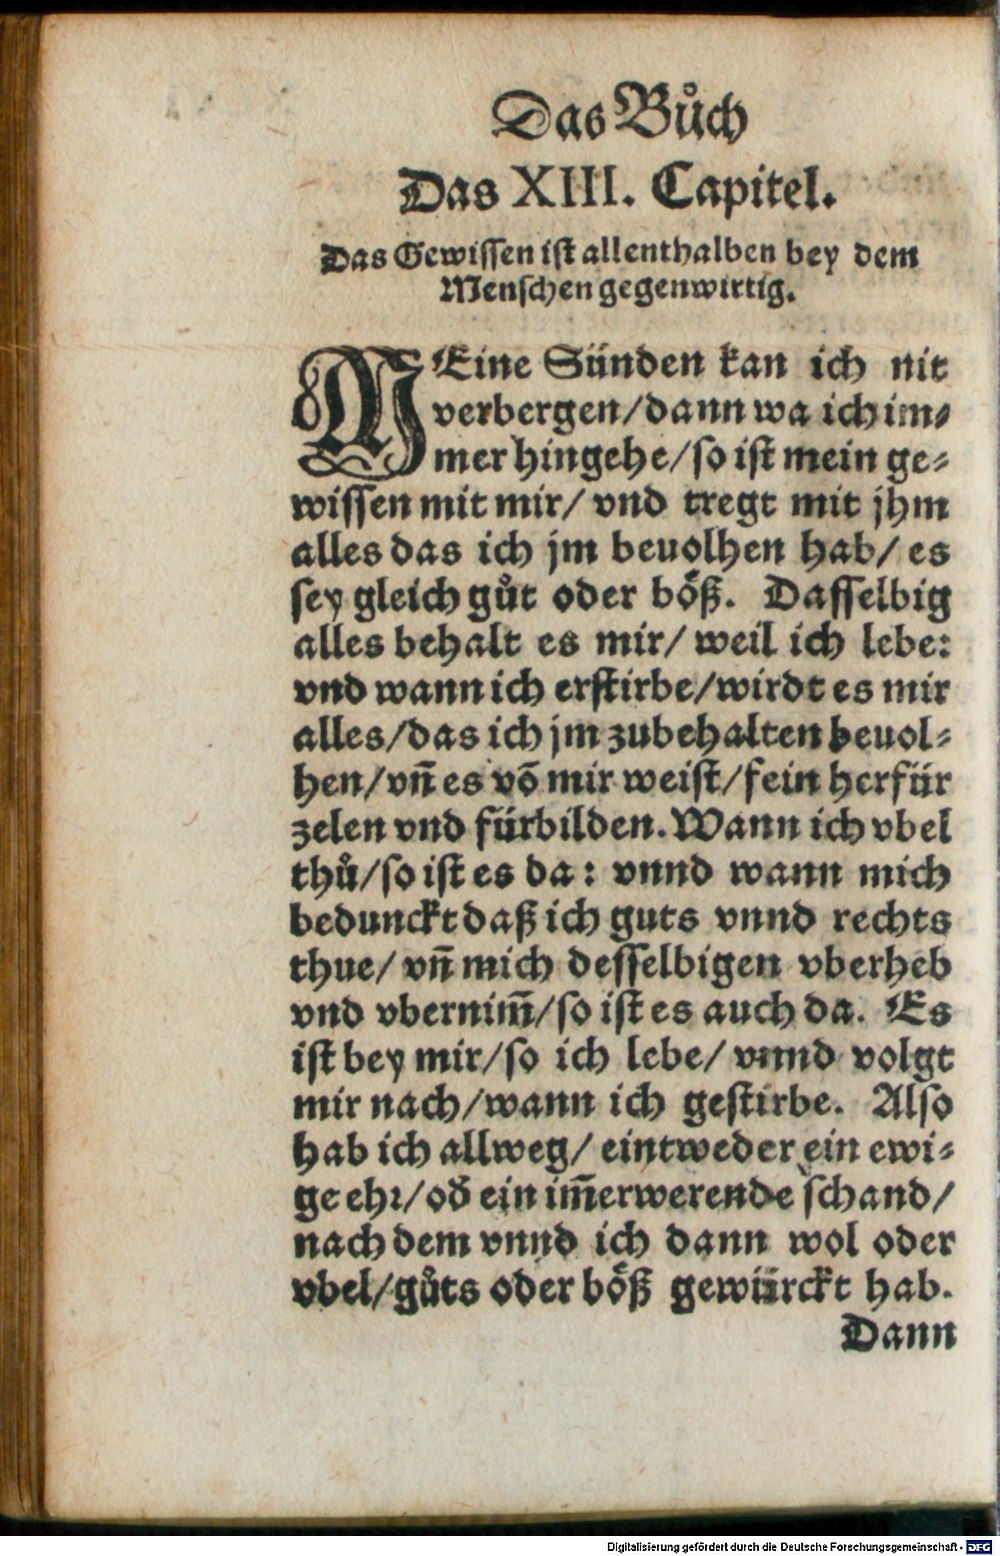 Das Bůch
Das XIII. Capitel.
Das Gewissen ist allenthalben bey dem
Menschen gegenwirtig.
MEine Sünden kan ich nit
verbergen/dann wa ich im⸗
mer hingehe/so ist mein ge⸗
wissen mit mir/ vnd tregt mit jhm
alles das ich jm beuolhen hab/ es
sey gleich gůt oder boͤß. Dasselbig
alles behalt es mir/ weil ich lebe:
vnd wann ich erstirbe/wirdt es mir
alles/das ich jm zubehalten beuol⸗
hen/vñ es võ mir weist/fein herfür
zelen vnd fürbilden. Wann ich vbel
thů/so ist es da: vnnd wann mich
bedunckt daß ich guts vnnd rechts
thue/ vñ mich desselbigen vberheb
vnd vbernim̃/so ist es auch da. Es
ist bey mir/so ich lebe/ vnnd volgt
mir nach/wann ich gestirbe. Also
hab ich allweg/ eintweder ein ewi⸗
ge ehr/od̕ ein im̃erwerende schand/
nach dem vnnd ich dann wol oder
vbel/gůts oder boͤß gewürckt hab.
Dann
Digitalisierung gefördert durch die Deutsche Forschungsgemeinschaft - DFG